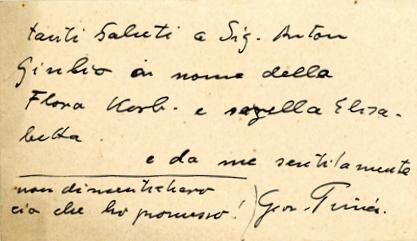 tanti Saluti a Sig. Anton
Giulio in nome della
Flora Korb. e sorella Elisa-
betta.
e da me sentitamente
non dimenticherò
ciò che ho promesso!
Geor.